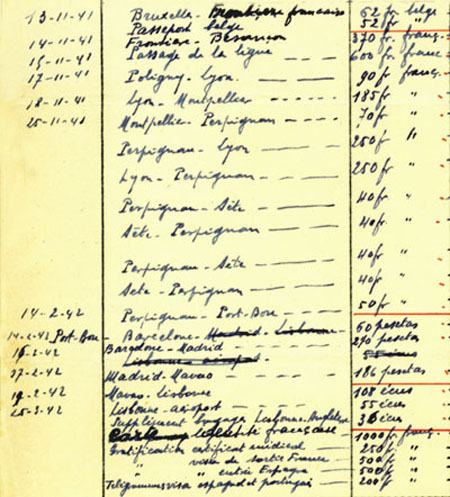 13-11-41 Bruxelles - Frontière francaise 62 fr. belge
Passeport belge 52 fr "
14-11-41 Frontière - Besançon 370 fr. franç.
15-11-41 Passage de la ligne 600 fr. france
17-11-41 Poligny - Lyon. 90 fr franç.
18-11-41 Lyon - Montpellier 185 fr "
25-11-41 Montpellier - Perpignan 70 fr "
Perpignan - Lyon 250 fr "
Lyon - Perpignan 250 fr "
Perpignan - Sète 40 fr "
Sète - Perpignan 40 fr "
Perpignan - Sète 40 fr "
Sete - Perpignan 40 fr "
14-2-42 Perpignan - Port-Bou 50 fr "
14-2-42 Port-Bou - Barcelone - Madrid - Lisbonne 60 pesetas
-2-42 Barcelone - Madrid 290 pesetas
Lisbonne - airopot 55 écus
-2-42 Madrid - Mavao 186 pesetas
-2-42 Mavao - Lisbonne 108 écus
25-3-42 Lisbonne - aéroport 55 écus
Supplément bagage Lisbonne - Angleterre 36 écus
Carte identité française 1000 fr franç.
Gratification certificat médical 250 fr "
" visa de sortie France 500 fr "
" entrée Espagne 500 fr "
Télégrammes visa espagnol et portugais 200 "